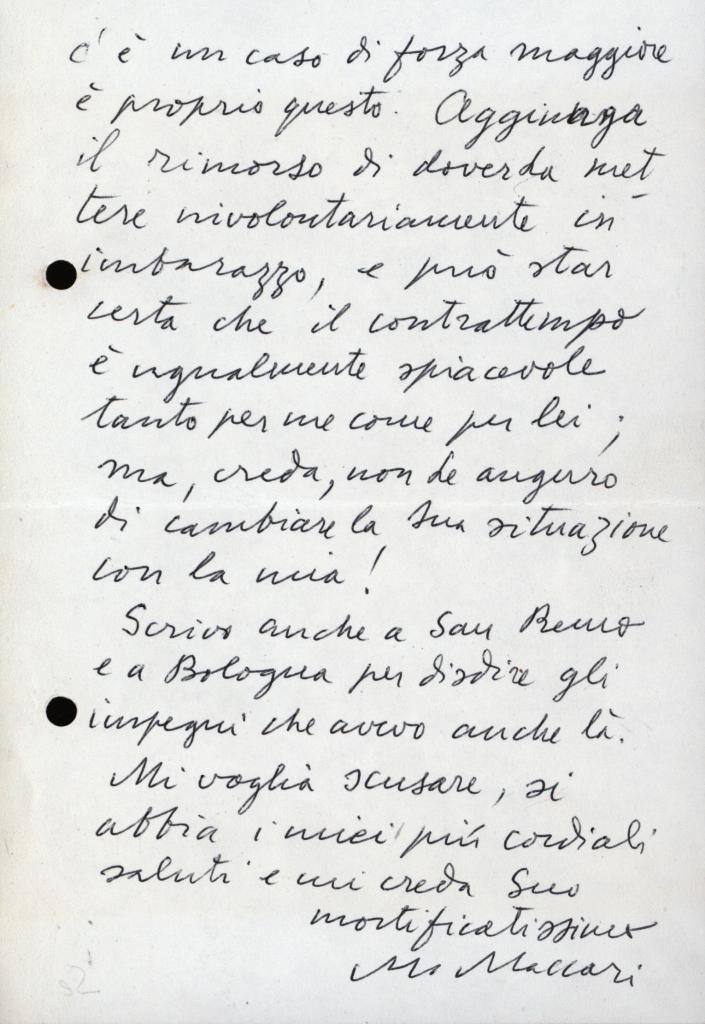 c'è un caso di forza maggiore
è proprio questo. Aggiunga
il rimorso di doverla met
tere involontariamente in
imbarazzo, e può star
certa che il contrattempo
è ugualmente spiacevole
tanto per me come per lei;
ma, creda, non le auguro
di cambiare la Sua situazione
con la mia!
Scrivo anche a San Remo
e a Bologna per disdire gli
impegni che avevo anche là.
Mi voglia scusare, si
abbia i miei più cordiali
saluti e mi creda Suo
mortificatissimo
Maccari